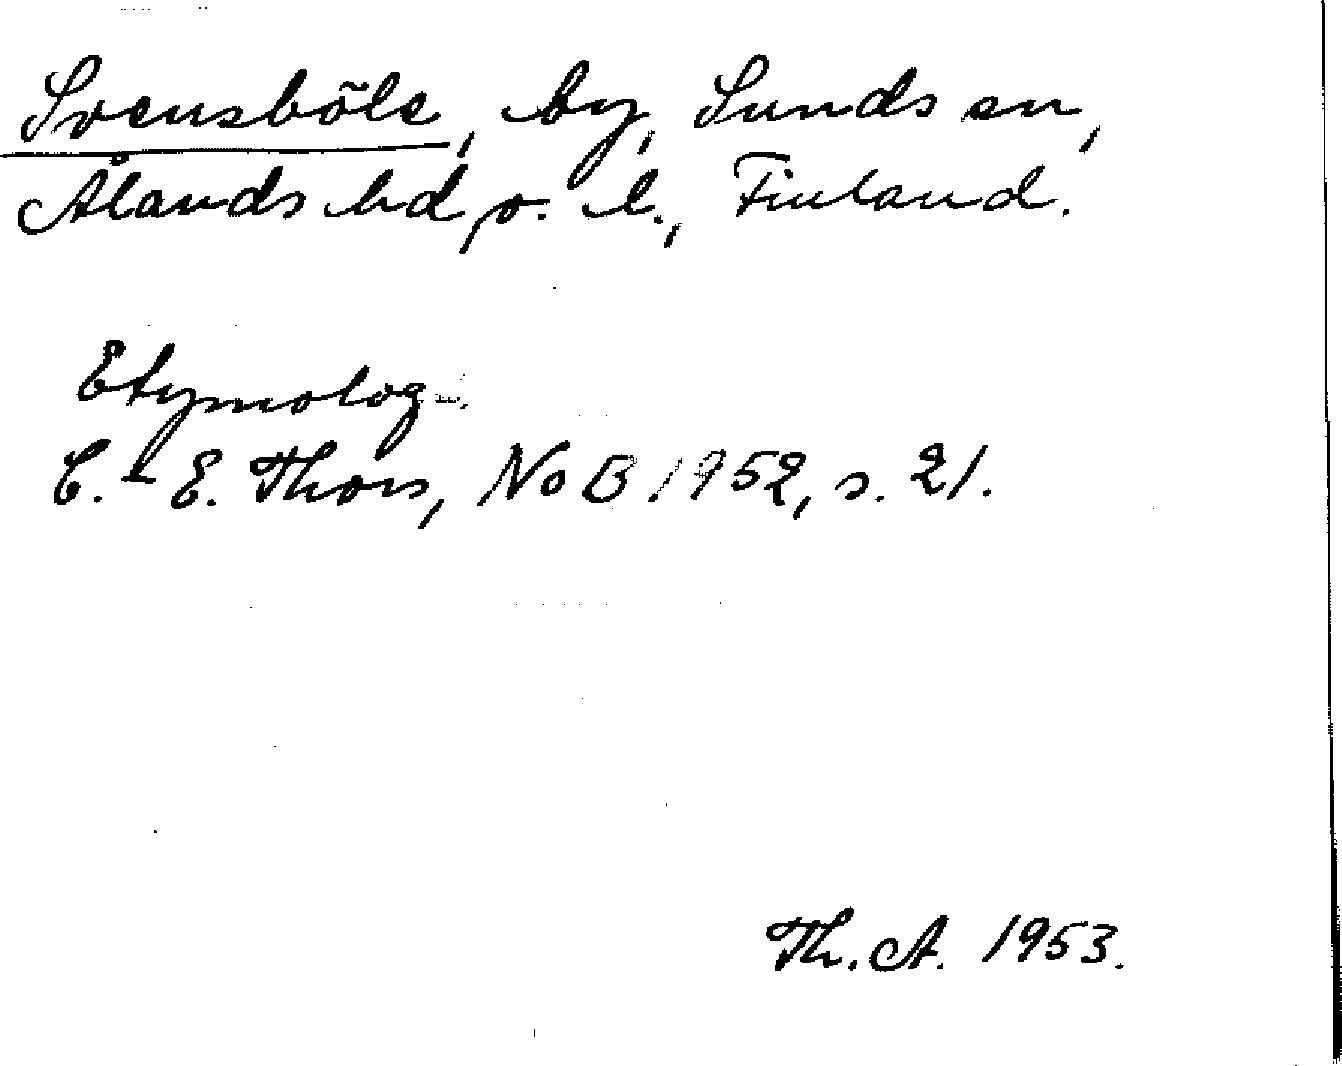 Svensböle, by, Sunds sn,
Ålands hd o. l., Finland.
Etymolog.
C.-E. Thors, NoB 1952, s. 21.
Th. A. 1953.